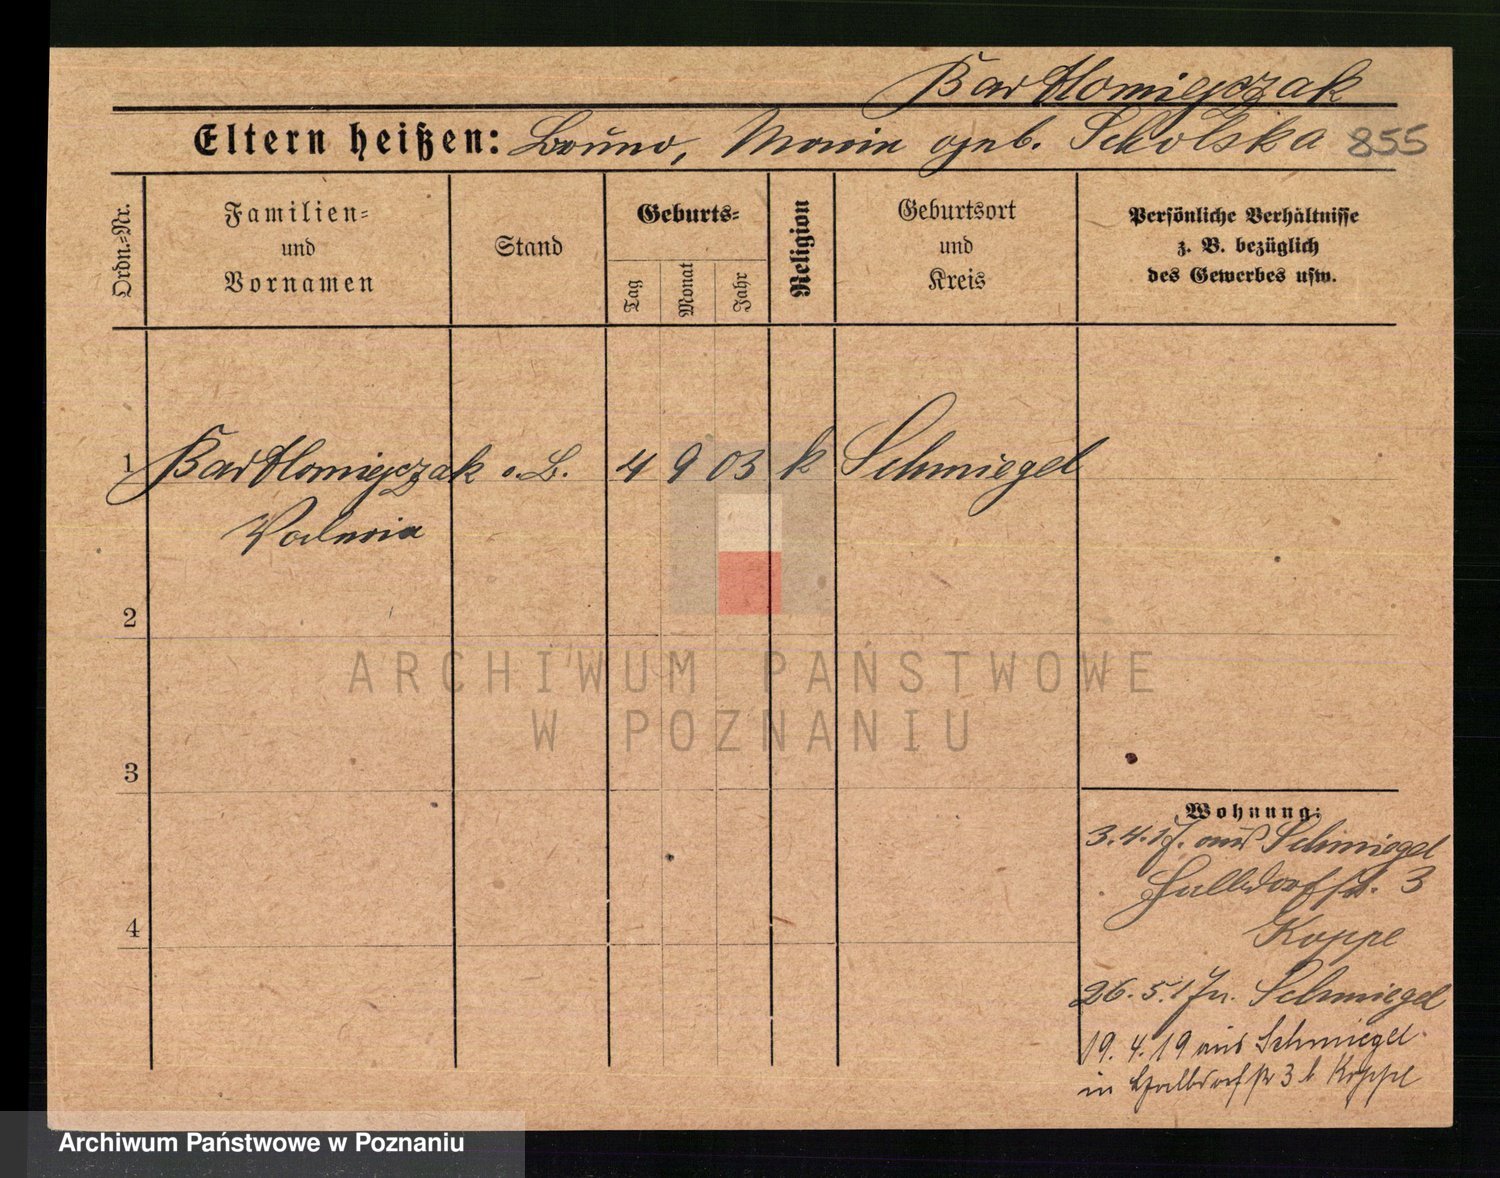 Bartlomiejczak
Eltern heißen: Bruno, Maria geb. Scholska 855
Ordn.=Nr.
Familien=
und
Vornamen
Stand
Geburts=
Tag
Monat
Jahr
Religion
Geburtsort
und
Kreis
Persönliche Verhältnisse
z. B. bezüglich
des Gewerbes usw.
1 Bartlomiejczak o.B. 4 9 03 k Schmiegel
Valeria
2
3
4
Wohnung:
3.4.17. aus Schmiegel
Halbdorfstr. 3
Koppe
26.5.17 n. Schmiegel
19.4.19 aus Schmiegel
in Halbdorfstr 3 b Koppe
ARCHIWUM PAŃSTWOWE
W POZNANIU
Archiwum Państwowe w Poznaniu